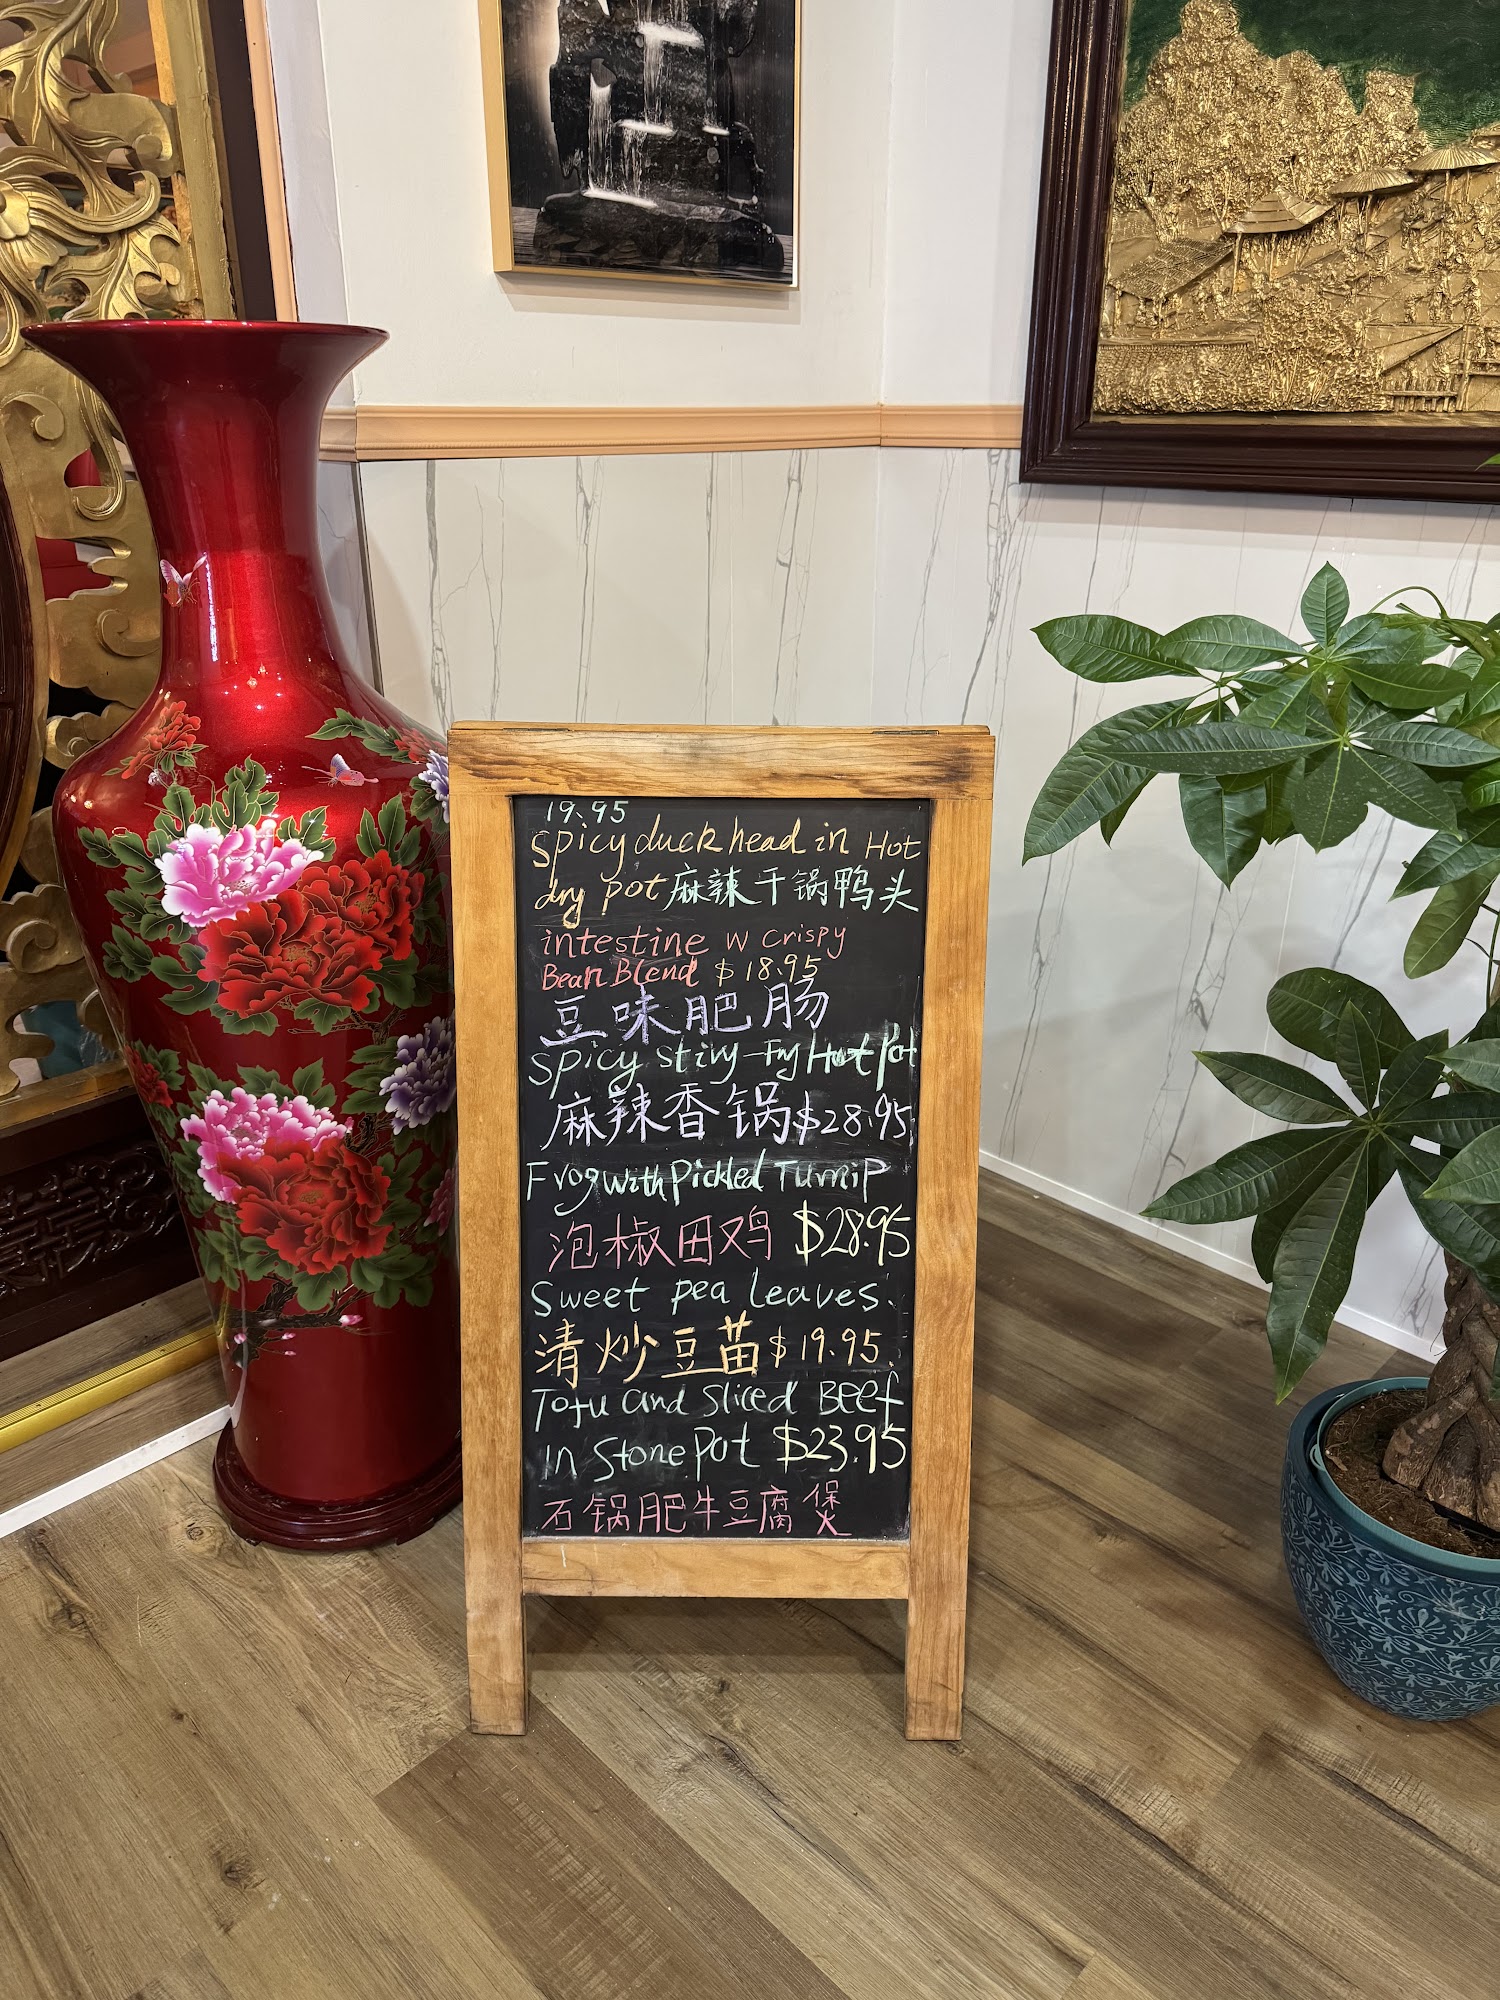 19.95
Spicy duck head in Hot
dry pot麻辣干锅鸭头
intestine W Crispy
Bean Blend $18.95
豆味肥肠
Spicy Stiry-Fry Hot Pot
麻辣香锅$28.95
Frog with Pickled Turnip
泡椒田鸡 $28.95
Sweet pea leaves.
清炒豆苗$19.95.
Tofu and Sliced Beef
In Stone Pot $23.95
石锅肥牛豆腐煲